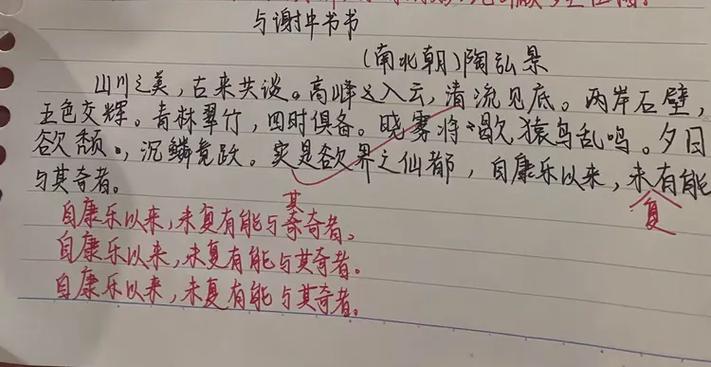 与谢中书书
(南北朝)陶弘景
山川之美，古来共谈。高峰入云，清流见底。两岸石壁，
五色交辉。青林翠竹，四时俱备。晓雾将歇猿鸟乱鸣。夕日
欲颓。，沉鳞竞跃。实是欲界之仙都，自康乐以来，未有能
复
与其奇者。
其
自康乐以来，未复有能与奇奇者。
自康乐以来，未复有能与其奇者。
自康乐以来，未复有能与其奇者。